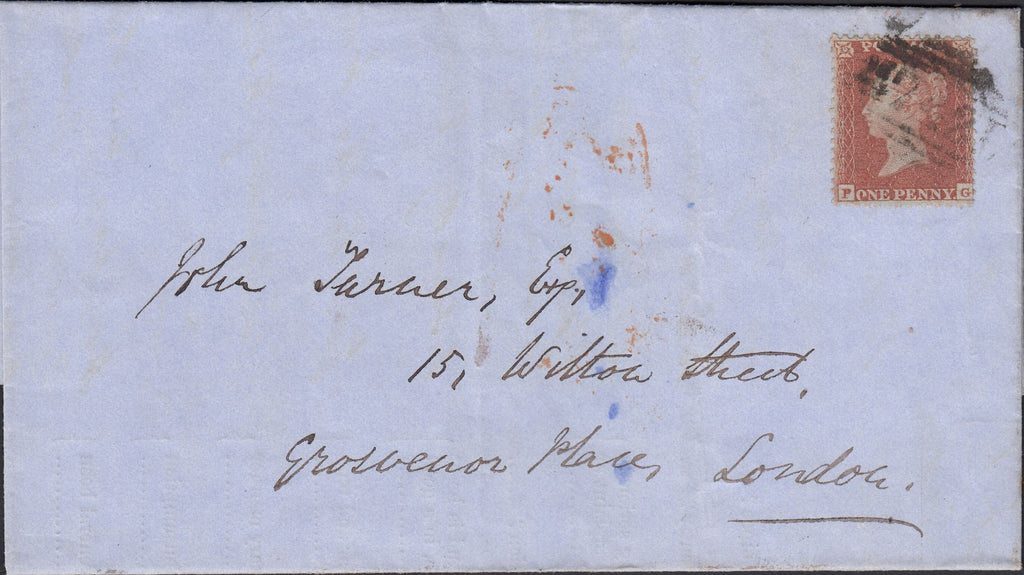 P ONE PENNY. G
John Turner, Esq.,
15, Wilton Street,
Grosvenor Place,
London.